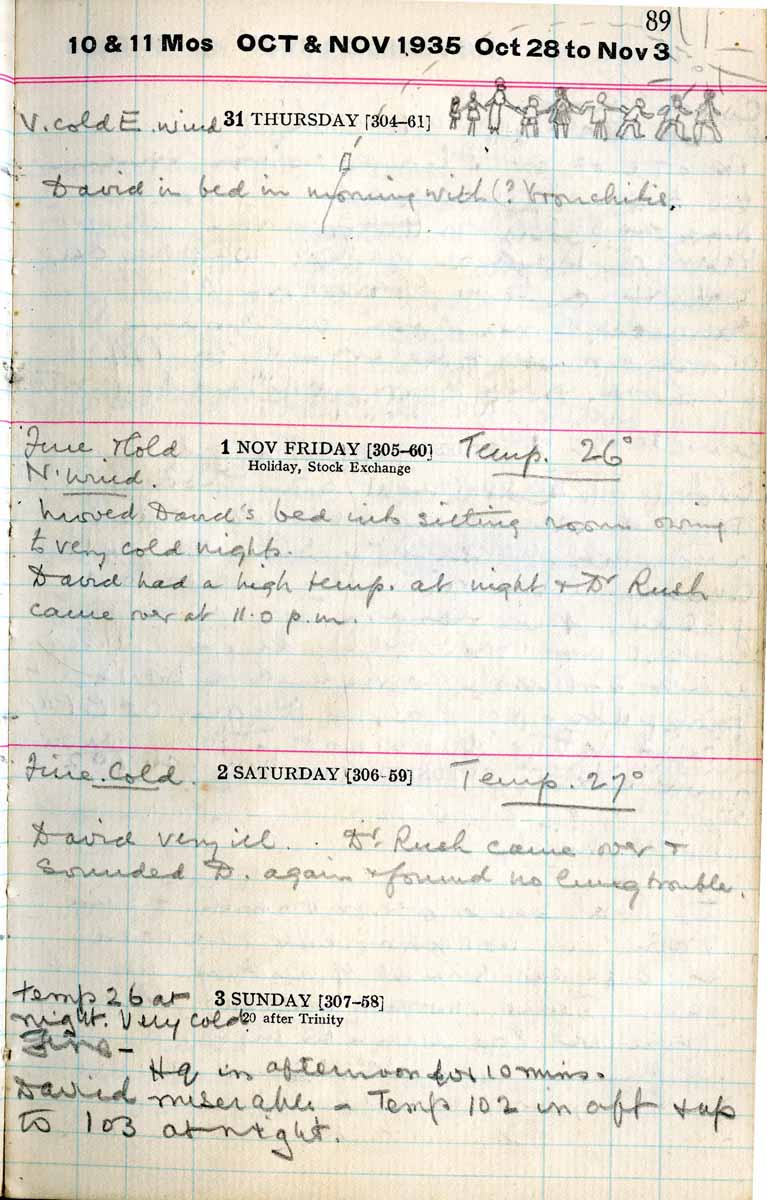 89
10 & 11 Mos OCT & NOV 1935 Oct 28 to Nov 3
V. cold E. wind 31 THURSDAY [304–61]
David in bed in morning with (? bronchitis.
Fine & cold 1 NOV FRIDAY [305–60] Temp. 26°
N. wind. Holiday, Stock Exchange
Moved David's bed into sitting room owing
to very cold nights.
David had a high temp. at night & Dr Rush
came over at 11.0 p.m.
Fine. Cold. 2 SATURDAY [306-59] Temp. 27°
David very ill. Dr Rush came over &
sounded D. again & found no lung trouble.
temp 26 at 3 SUNDAY [307–58]
night. Very cold 20 after Trinity
Fine –
in afternoon for 10 mins.
David miserable – Temp 102 in aft & up
to 103 at night.